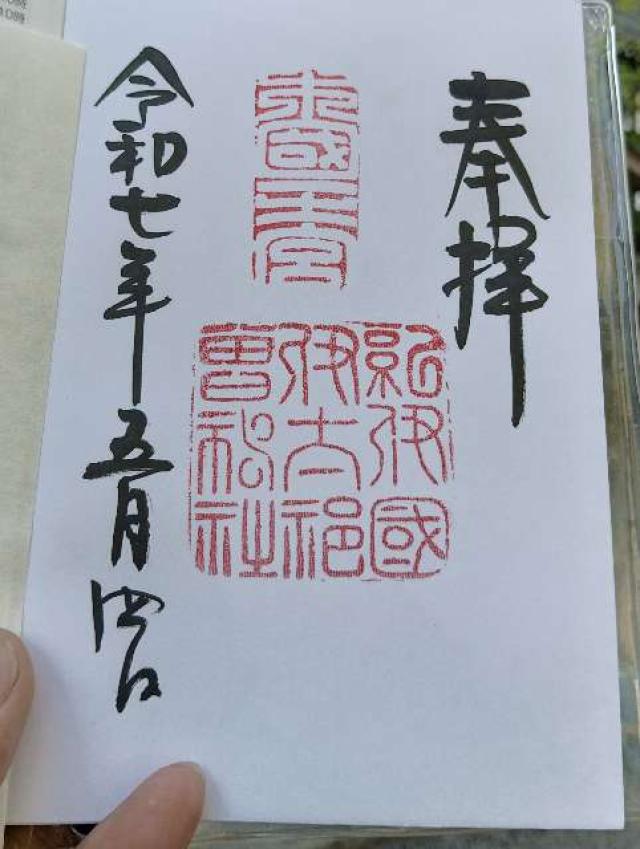 奉拝
紀伊國
伊太祁
曾神社
令和七年五月四日